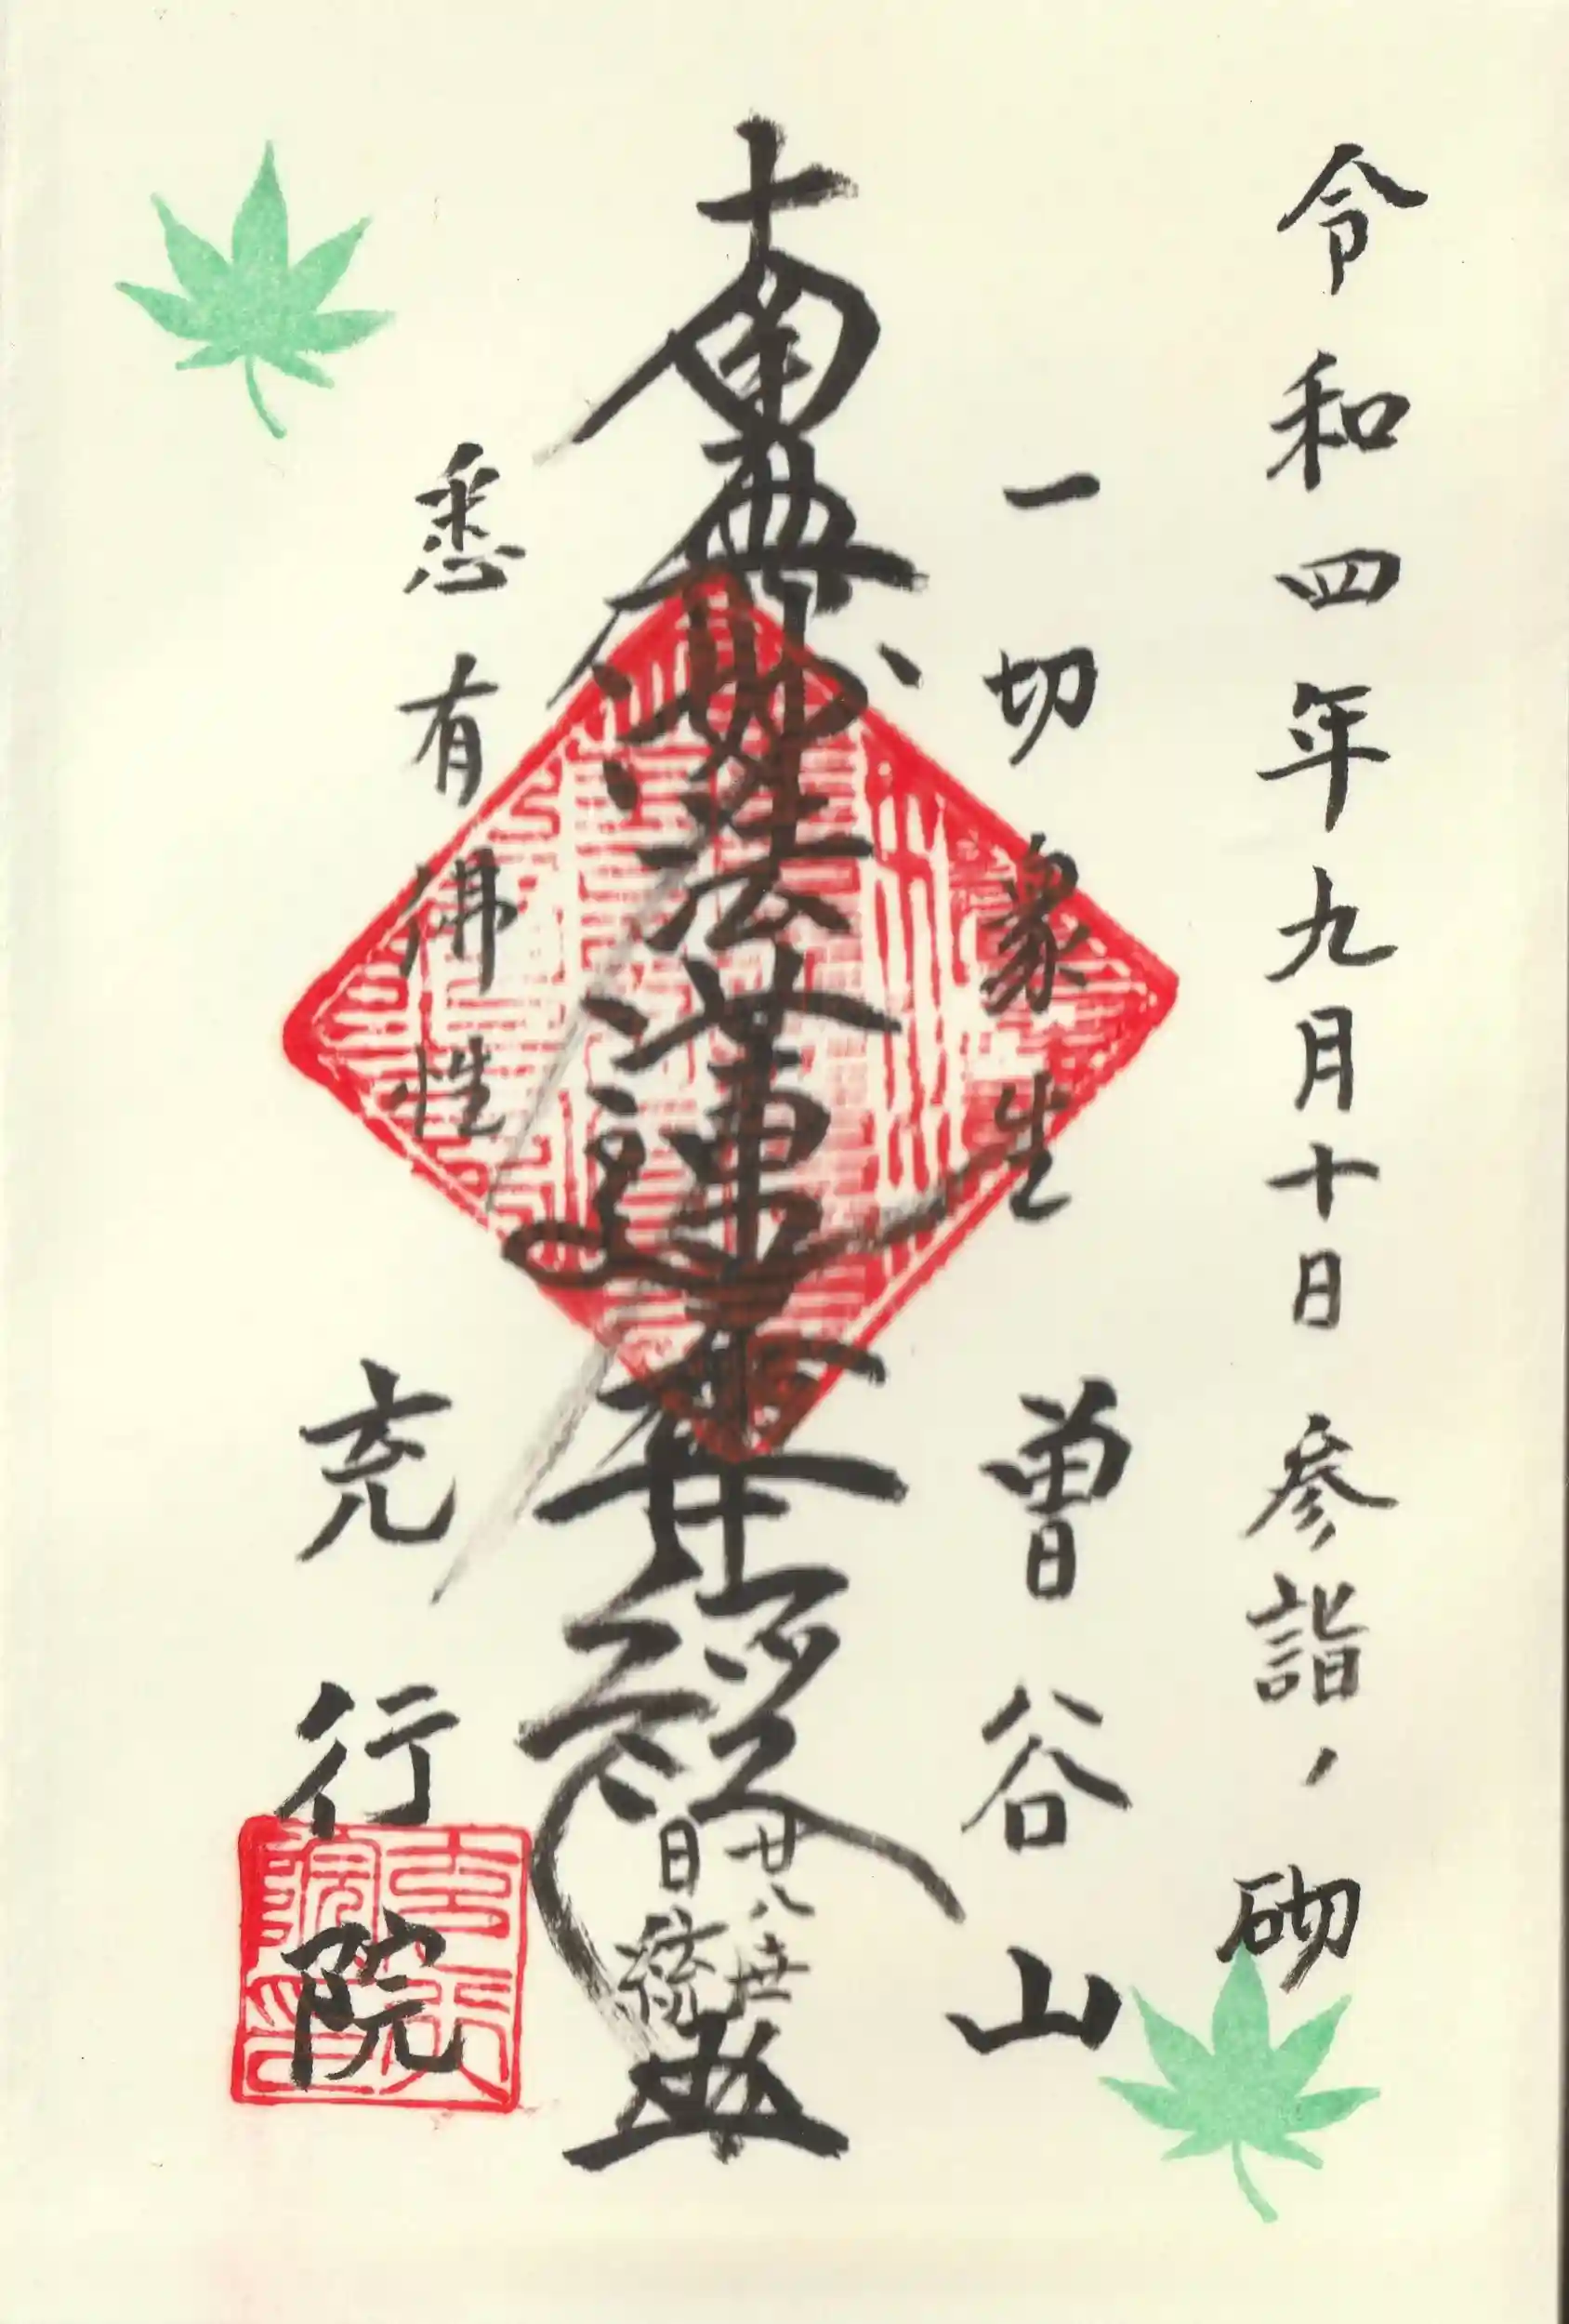 令和四年九月十日 参詣ノ 砌
一切衆生
曽谷山
南無妙法蓮華経
廿八世
日
悉有佛性
充行院